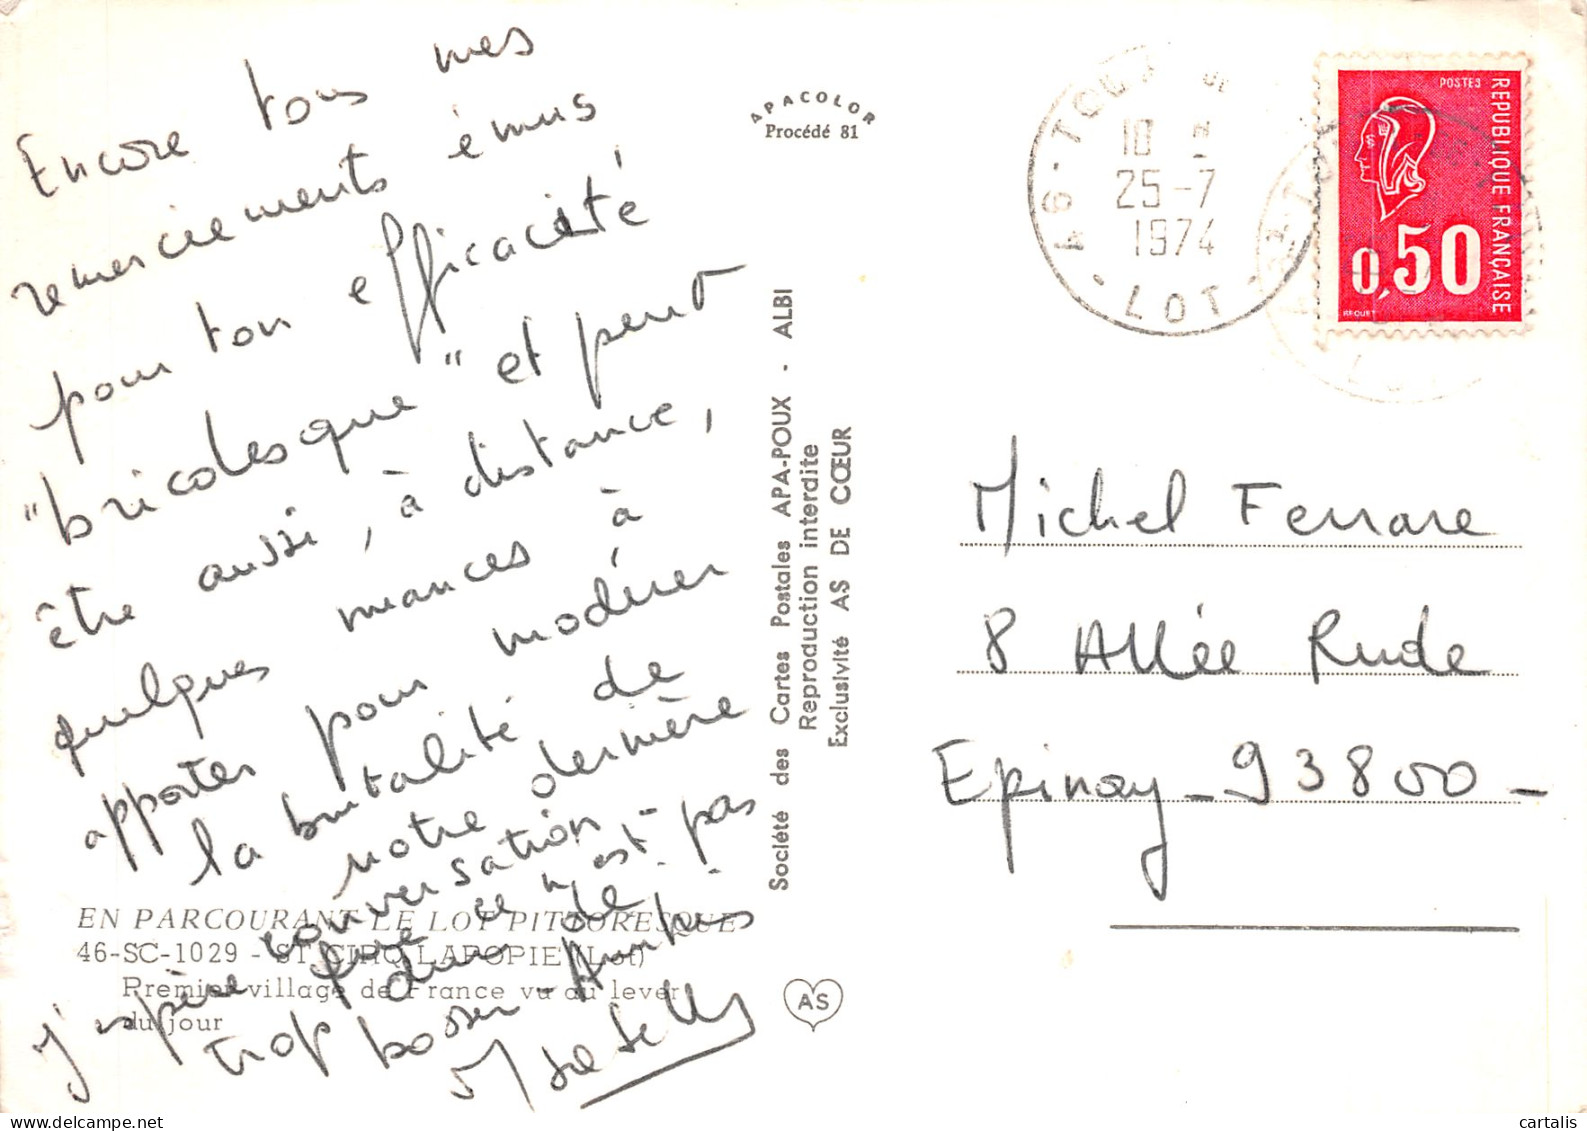 Encore tous mes
remerciements émus
pour ton efficacité
"bricolesque" et peut
être aussi, à distance,
quelques nuances à
apporter pour modérer
la brutalité de
notre dernière
conversation -
J'espère que ce n'est pas
trop dur de
bosser - Amitiés
APACOLOR
Procédé 81
Société des Cartes Postales APA-POUX - ALBI
Reproduction interdite
Exclusivité AS DE CŒUR
EN PARCOURANT LE LOT PITTORESQUE
46-SC-1029 - ST CIRQ LAPOPIE (Lot)
Premier village de France vu au lever
du jour
AS
46 -
18
25-7
1974
LOT
POSTES
REPUBLIQUE FRANÇAISE
0,50
BEQUET
Michel Ferrare
8 Allée Rude
Epinay - 93800 -
cartalis